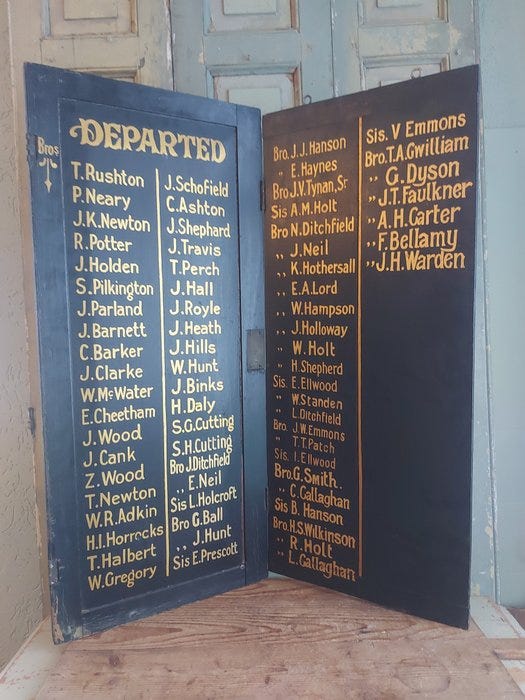 DEPARTED
Bros
T.Rushton
P.Neary
J.K.Newton
R.Potter
J.Holden
S.Pilkington
J.Parland
J.Barnett
C.Barker
J.Clarke
W.McWater
E.Cheetham
J.Wood
J.Cank
Z.Wood
T.Newton
W.R.Adkin
H.I.Horrocks
T.Halbert
W.Gregory
J.Schofield
C.Ashton
J.Shephard
J.Travis
T.Perch
J.Hall
J.Royle
J.Heath
J.Hills
W.Hunt
J.Binks
H.Daly
S.G.Cutting
S.H.Cutting
Bro J.Ditchfield
,, E.Neil
Sis L.Holcroft
Bro G.Ball
,, J.Hunt
Sis E.Prescott
Bro. J.J.Hanson
,, E.Haynes
Bro J.V.Tynan,Sr
Sis A.M.Holt
Bro N.Ditchfield
,, J.Neil
,, K.Hothersall
,, E.A.Lord
,, W.Hampson
,, J.Holloway
,, W.Holt
,, H.Shepherd
Sis. E.Ellwood
,, W.Standen
,, L.Ditchfield
Bro. J.W.Emmons
,, T.T.Patch
Sis. I.Ellwood
Bro.G.Smith.
,, C.Callaghan
Sis B.Hanson
Bro.H.S.Wilkinson
,, R.Holt
,, L.Callaghan
Sis. V Emmons
Bro.T.A.Gwilliam
,, G.Dyson
,, J.T.Faulkner
,, A.H.Carter
,, F.Bellamy
,, J.H.Warden